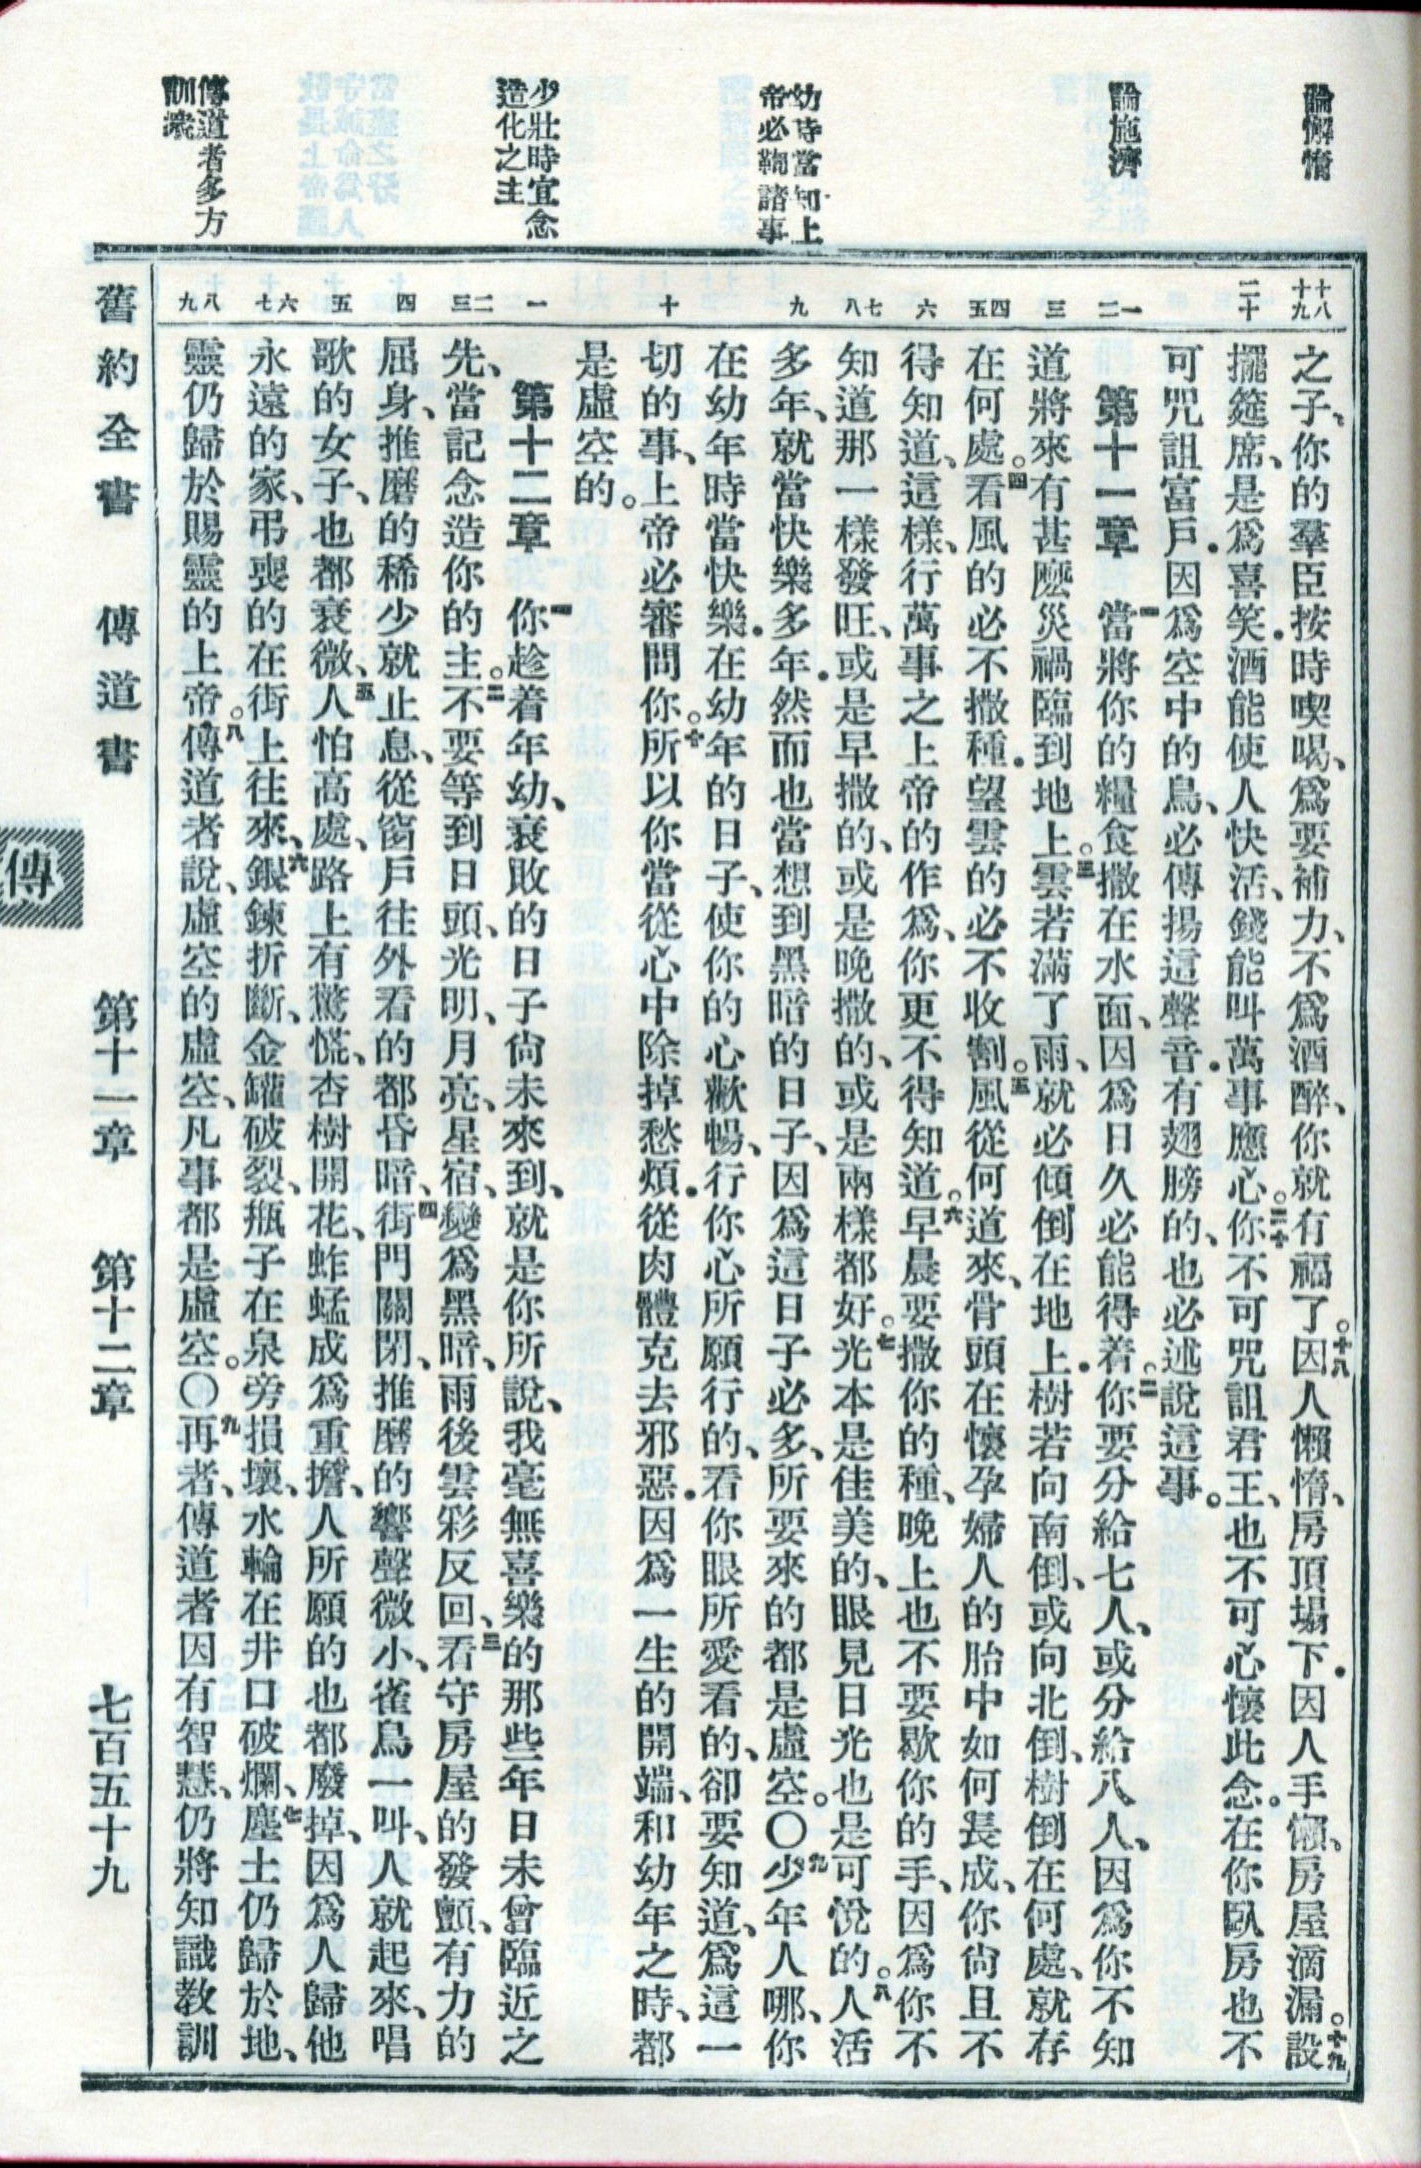 論懈惰
論施濟
幼時當知上
帝必鞫諸事
少壯時宜念
造化之主
傳道者多方
訓衆
十八
十九
二十
一
二
三
四
五
六
七
八
九
十
一
二
三
四
五
六
七
八
九
之子、你的羣臣按時喫喝、爲要補力、不爲酒醉、你就有福了。十八因人懶惰、房頂塌下．因人手懶、房屋滴漏。十九設
擺筵席、是爲喜笑．酒能使人快活、錢能叫萬事應心。二十你不可咒詛君王、也不可心懷此念。在你臥房也不
可咒詛富戶．因爲空中的鳥、必傳揚這聲音．有翅膀的、也必述說這事。
第十一章　一當將你的糧食撒在水面、因爲日久必能得着。二你要分給七人、或分給八人、因爲你不知
道將來有甚麽災禍臨到地上。三雲若滿了雨、就必傾倒在地上．樹若向南倒、或向北倒、樹倒在何處、就存
在何處。四看風的必不撒種．望雲的必不收割。五風從何道來、骨頭在懷孕婦人的胎中如何長成、你尙且不
得知道、這樣、行萬事之上帝的作爲、你更不得知道。六早晨要撒你的種、晚上也不要歇你的手、因爲你不
知道那一樣發旺、或是早撒的、或是晚撒的、或是兩樣都好。七光本是佳美的、眼見日光也是可悅的。八人活
多年、就當快樂多年．然而也當想到黑暗的日子、因爲這日子必多、所要來的都是虛空。〇九少年人哪、你
在幼年時當快樂．在幼年的日子、使你的心歡暢、行你心所願行的、看你眼所愛看的、卻要知道、爲這一
切的事、上帝必審問你。十所以你當從心中除掉愁煩．從肉體克去邪惡．因爲一生的開端、和幼年之時、都
是虛空的。
第十二章　一你趁着年幼、衰敗的日子尙未來到、就是你所說、我毫無喜樂的那些年日未曾臨近之
先、當記念造你的主。二不要等到日頭、光明、月亮、星宿、變爲黑暗、雨後雲彩反回、三看守房屋的發顫、有力的
屈身、推磨的稀少就止息、從窗戶往外看的都昏暗、四街門關閉、推磨的響聲微小、雀鳥一叫、人就起來、唱
歌的女子、也都衰微、五人怕高處、路上有驚慌、杏樹開花、蚱蜢成爲重擔、人所願的也都廢掉、因爲人歸他
永遠的家、弔喪的在街上往來、六銀鍊折斷、金罐破裂、瓶子在泉旁損壞、水輪在井口破爛、七塵土仍歸於地、
靈仍歸於賜靈的上帝。八傳道者說、虛空的虛空、凡事都是虛空。〇九再者、傳道者因有智慧、仍將知識教訓
舊約全書　傳道書　第十一章　第十二章　七百五十九
傳